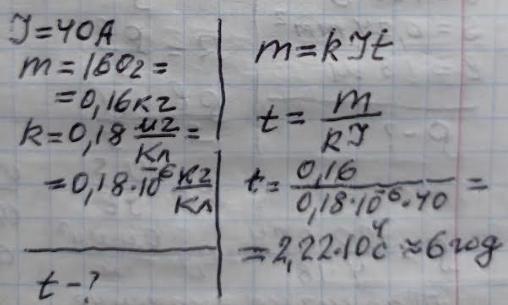 I=40A
m=160г=
=0,16кг
k=0,18 мг/Кл =
=0,18·10⁻⁶ кг/Кл
t-?
m=kIt
t= m/kI
t= 0,16/0,18·10⁻⁶·40 =
=2,22·10⁴c≈6год